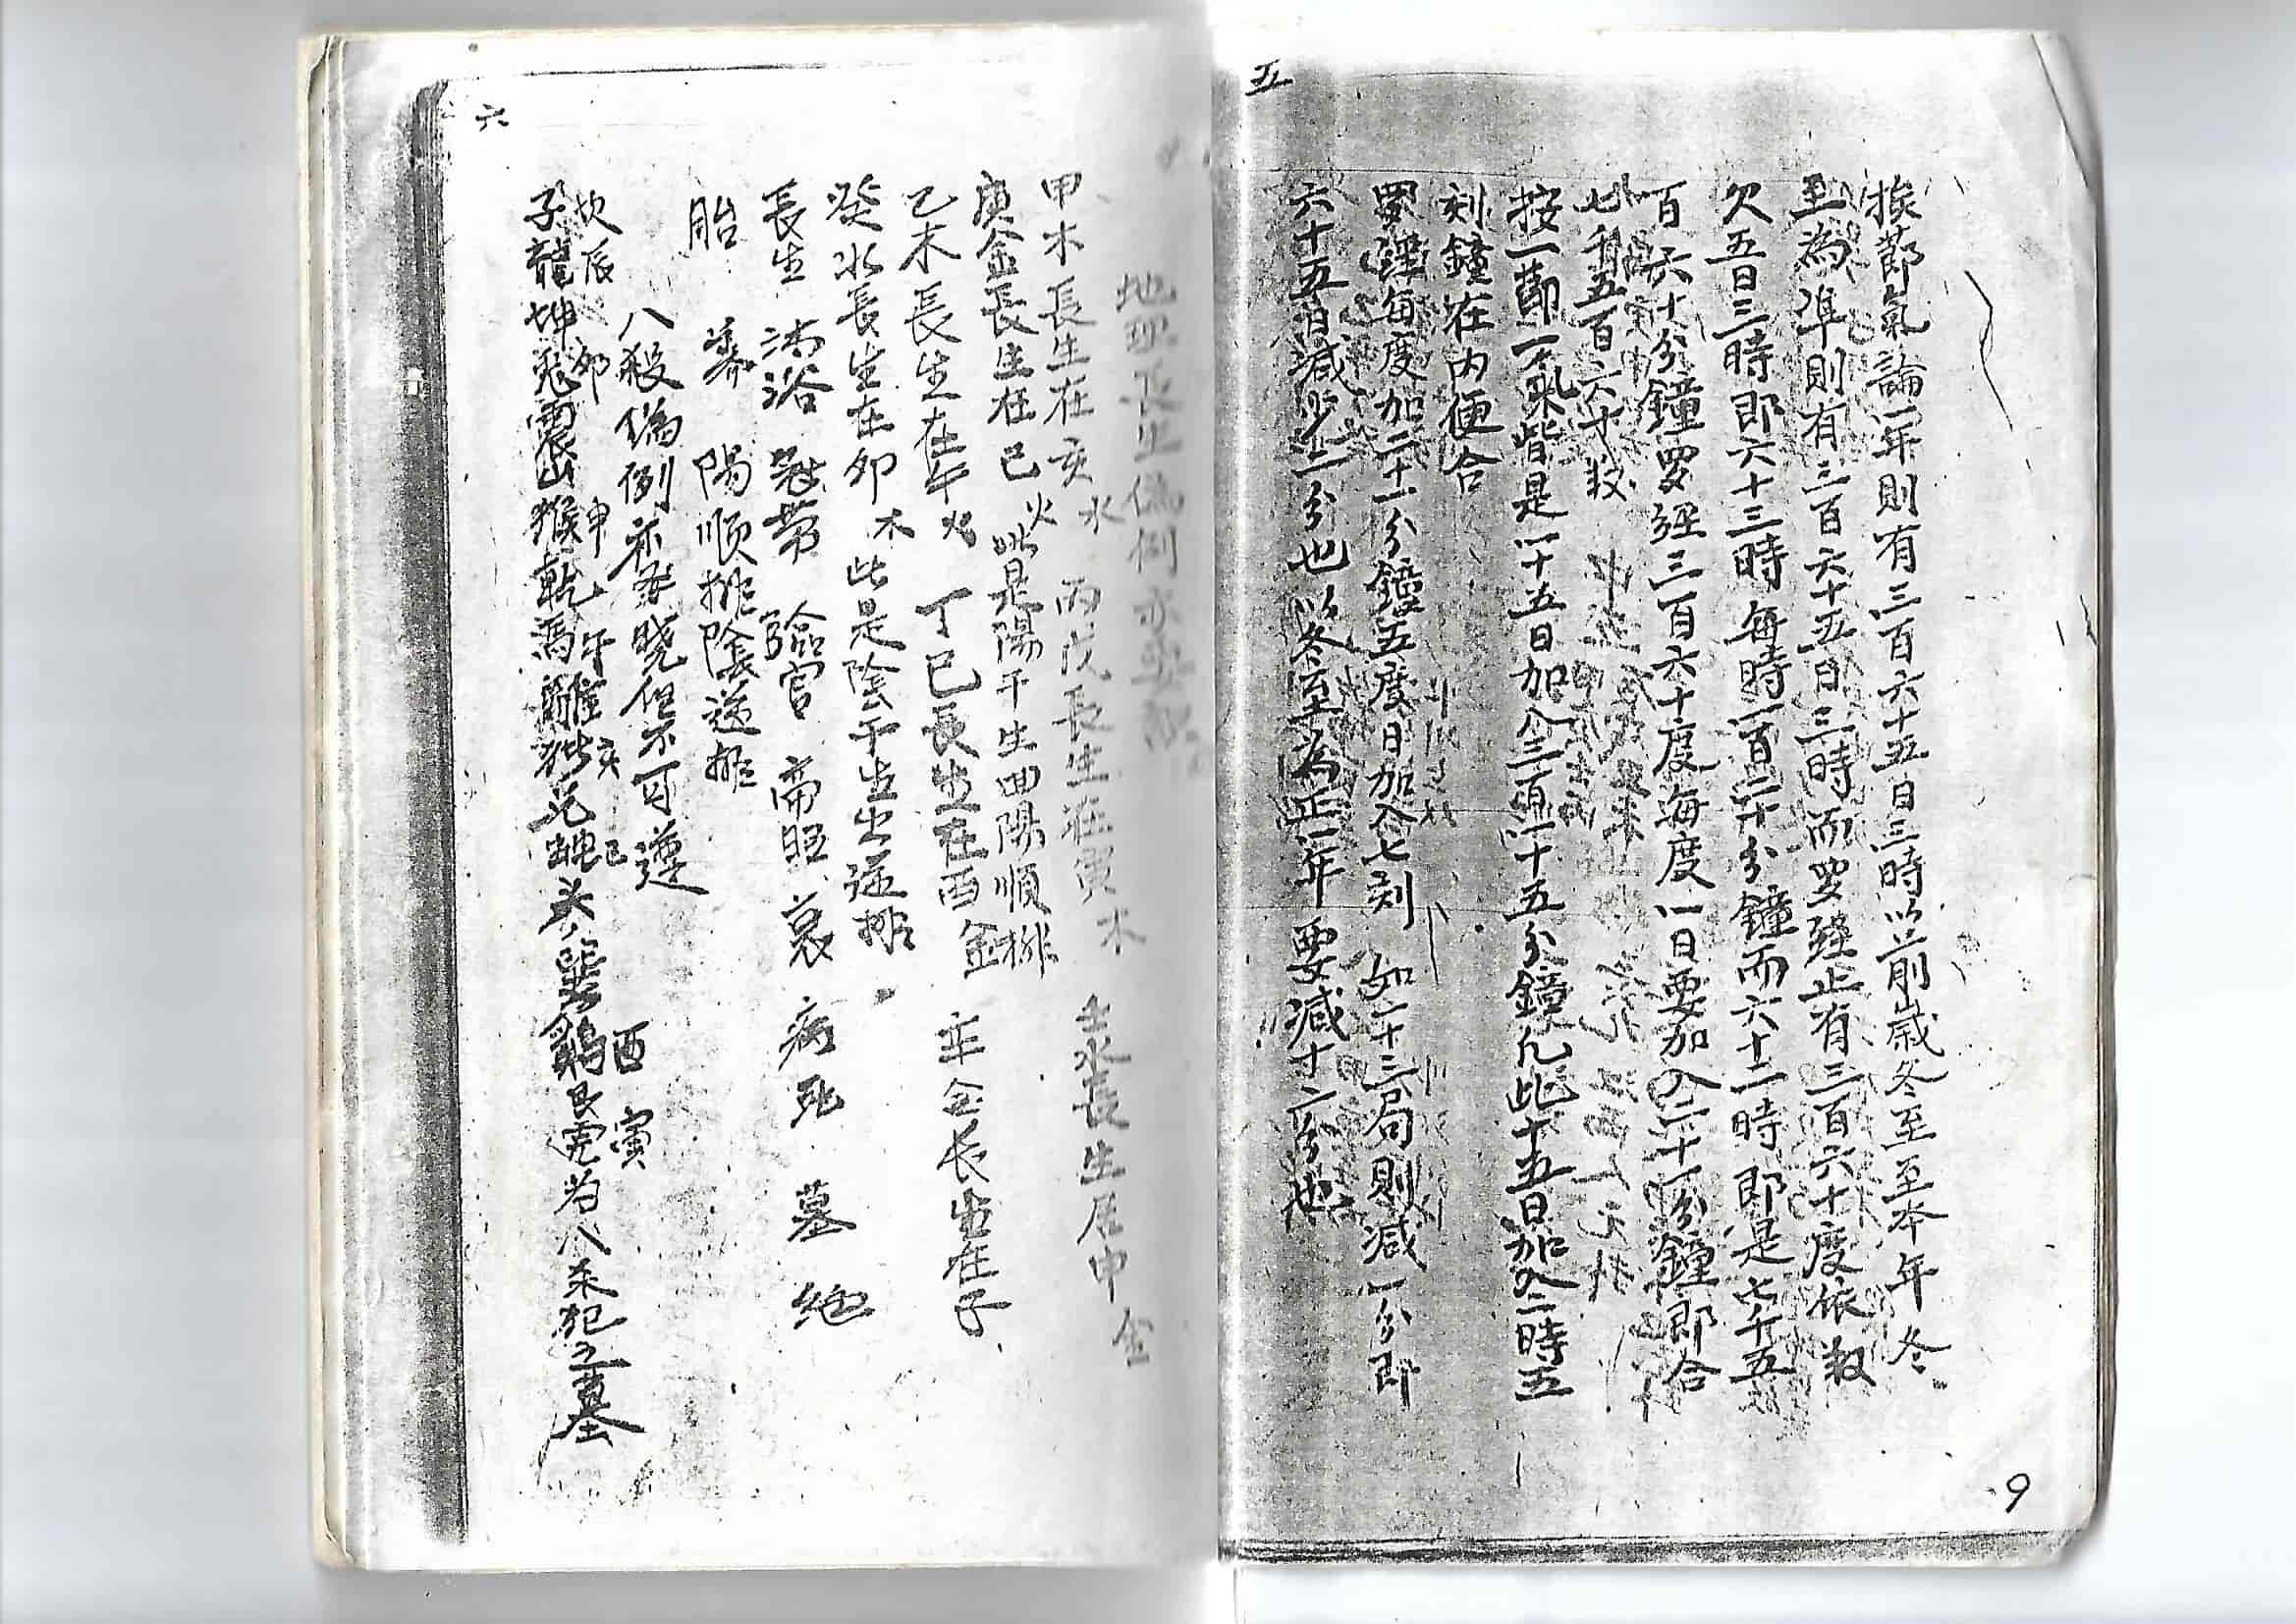 五
挨節氣論一年則有三百六十五日三時以前歲冬至至本年冬
至為準則有三百六十五日三時而罗經止有三百六十度依数
欠五日三時即六十三時每時一百二十分鐘而六十三時即是七千五
百六十分鐘罗經三百六十度每度一日要加入二十一分鐘即合
七千五百六十数
按一節一气皆是一十五日加入三百一十五分鐘凡此十五日加入二時五
刻鐘在内便合
罗經每度加二十一分鐘五度日加入七刻 如二十三局則減一分即
六十五日減少一分也以冬至為正一年要減十二分也
9
六
地理長生偽例亦要
甲木長生在亥水 丙戊長生在寅木 壬水長生居申金
庚金長生在巳火 此是陽干生出陽順排
乙木長生在午火 丁己長生在酉金 辛金长生在子
癸水長生在卯木 此是陰干生出逆排
長生 沐浴 冠帶 臨官 帝旺 衰 病 死 墓 絶
胎 養 陽順排陰逆排
八殺偽例亦要曉但不可遵
坎辰 卯 申 午 亥 巳 酉 寅
子龍坤兎震山猴乾馬離猪兌蛇头巽鷄艮虎为八杀犯之墓